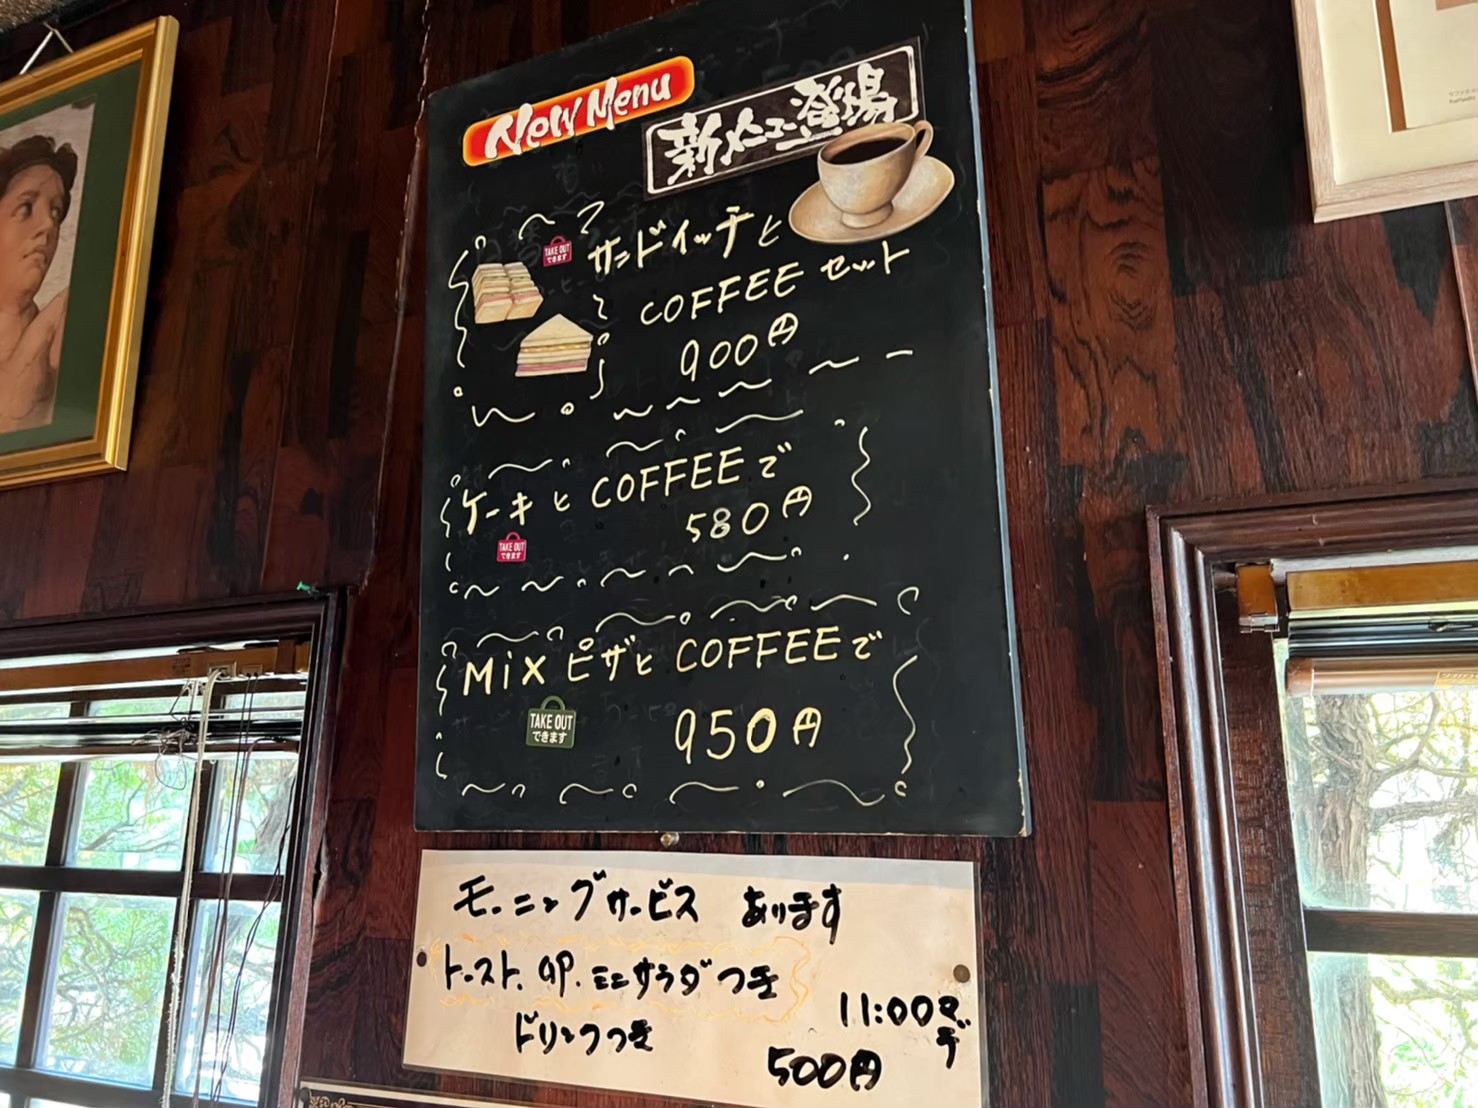 New Menu
新メニュー登場
TAKE OUT
できます
サンドイッチと
COFFEE セット
900円
ケーキと COFFEEで
580円
TAKE OUT
できます
MiX ピザと COFFEEで
TAKE OUT
できます
950円
モーニングサービス あります
トースト. GP. ミニサラダつき
ドリンクつき
11:00マデ
500円